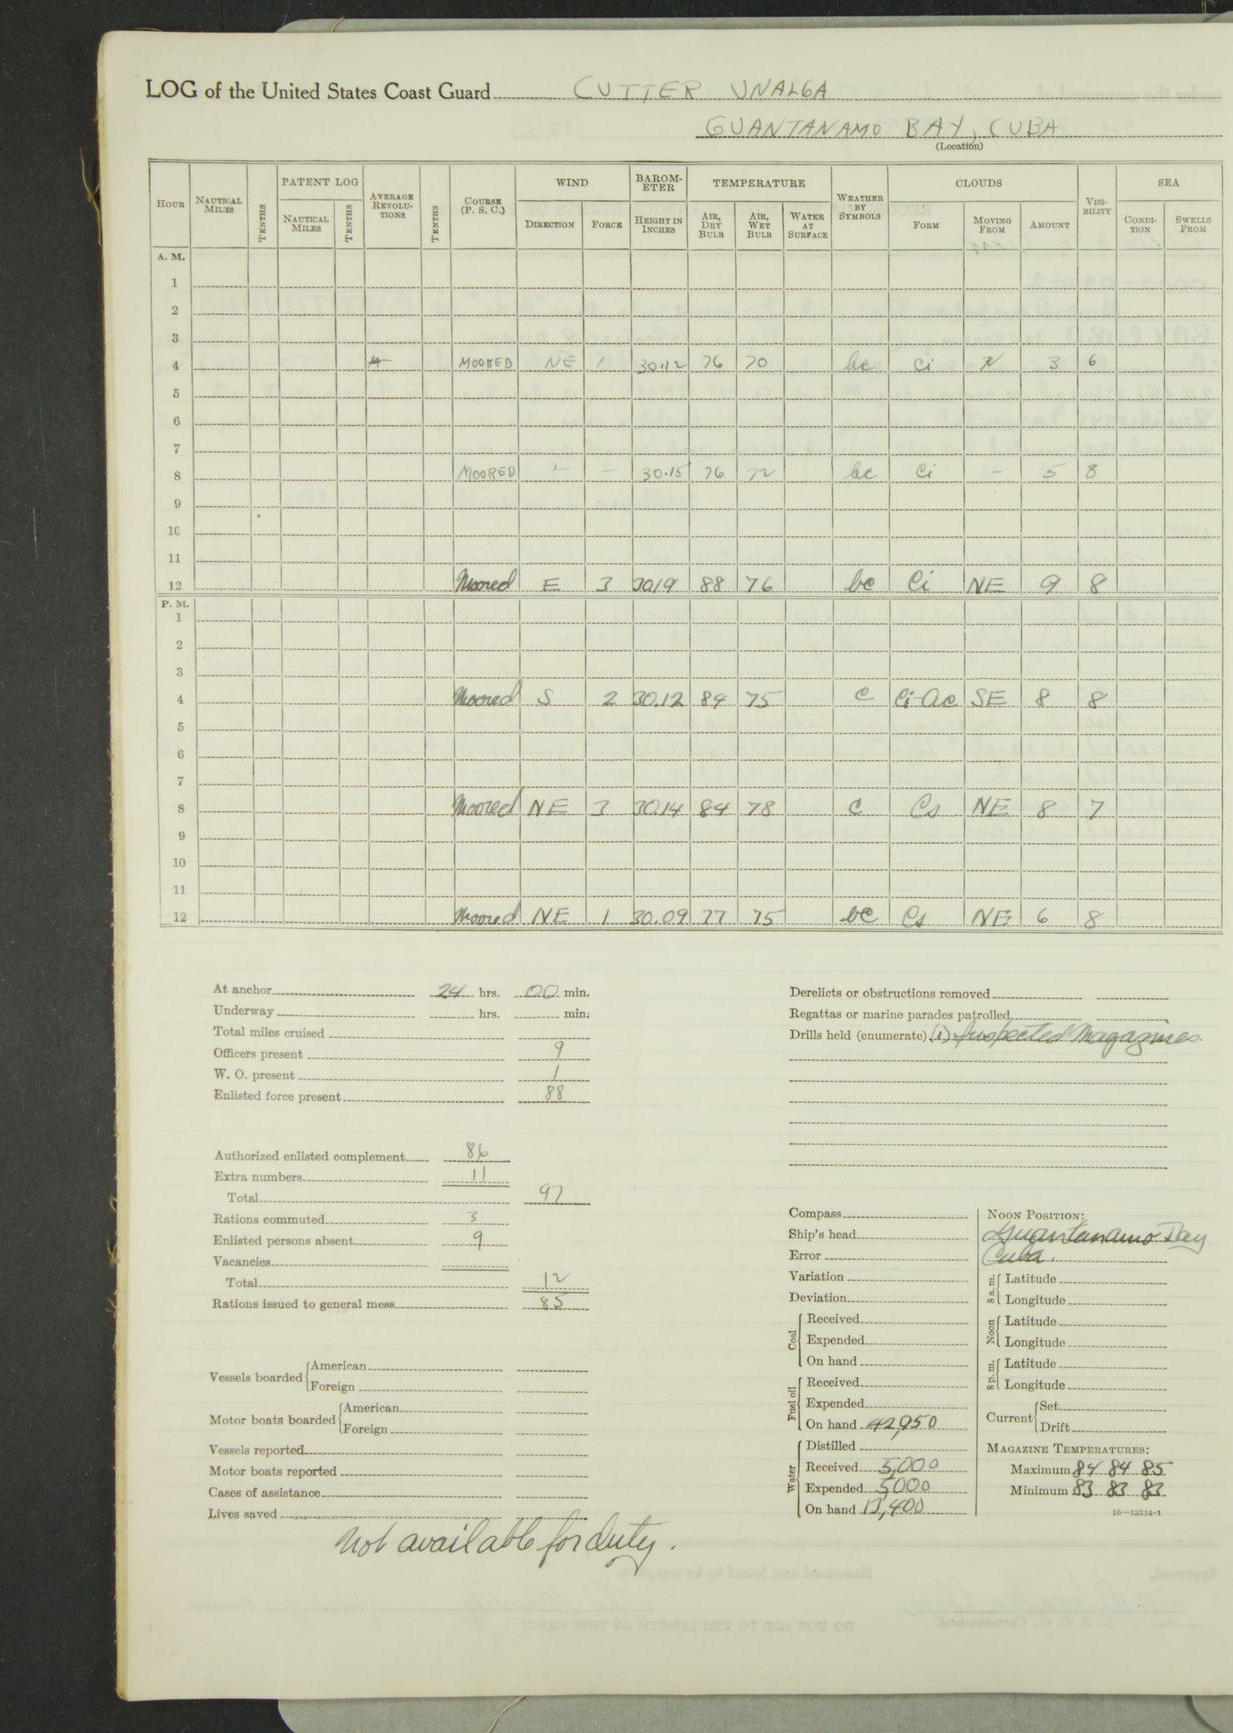 LOG of the United States Coast Guard CUTTER UNALGA
GUANTANAMO BAY, CUBA
(Location)
HOUR NAUTICAL MILES TENTHS PATENT LOG NAUTICAL MILES TENTHS AVERAGE REVOLUTIONS TENTHS COURSE (P. S. C.) WIND DIRECTION FORCE BAROMETER HEIGHT IN INCHES TEMPERATURE AIR, DRY BULB AIR, WET BULB WATER AT SURFACE WEATHER BY SYMBOLS CLOUDS FORM MOVING FROM AMOUNT VISIBILITY SEA CONDITION SWELLS FROM
A. M.
1
2
3
4 MOORED NE 1 30.12 76 70 bc Ci N 3 6
5
6
7
8 MOORED – – 30.15 76 72 bc Ci – 5 8
9
10
11
12 Moored E 3 3019 88 76 bc Ci NE 9 8
P. M.
1
2
3
4 Moored S 2 30.12 84 75 c Ci-Ac SE 8 8
5
6
7
8 Moored NE 3 30.14 84 78 c Cs NE 8 7
9
10
11
12 Moored NE 1 30.09 77 75 bc Cs NE 6 8
At anchor 24 hrs. 00 min.
Underway hrs. min.
Total miles cruised
Officers present 9
W. O. present 1
Enlisted force present 88
Authorized enlisted complement 86
Extra numbers 11
Total 97
Rations commuted 3
Enlisted persons absent 9
Vacancies
Total 12
Rations issued to general mess 85
Vessels boarded American
Foreign
Motor boats boarded American
Foreign
Vessels reported
Motor boats reported
Cases of assistance
Lives saved
Not available for duty.
Derelicts or obstructions removed
Regattas or marine parades patrolled
Drills held (enumerate) (1) Inspected Magazines
Compass
Ship's head
Error
Variation
Deviation
Coal Received
Expended
On hand
Fuel oil Received
Expended
On hand 42,950
Water Distilled
Received 5,000
Expended 5000
On hand 13,400
NOON POSITION:
Guantanamo Bay
Cuba.
8 a. m. Latitude
Longitude
Noon Latitude
Longitude
8 p. m. Latitude
Longitude
Current Set
Drift
MAGAZINE TEMPERATURES:
Maximum 84 84 85
Minimum 83 83 83
16—13314-1